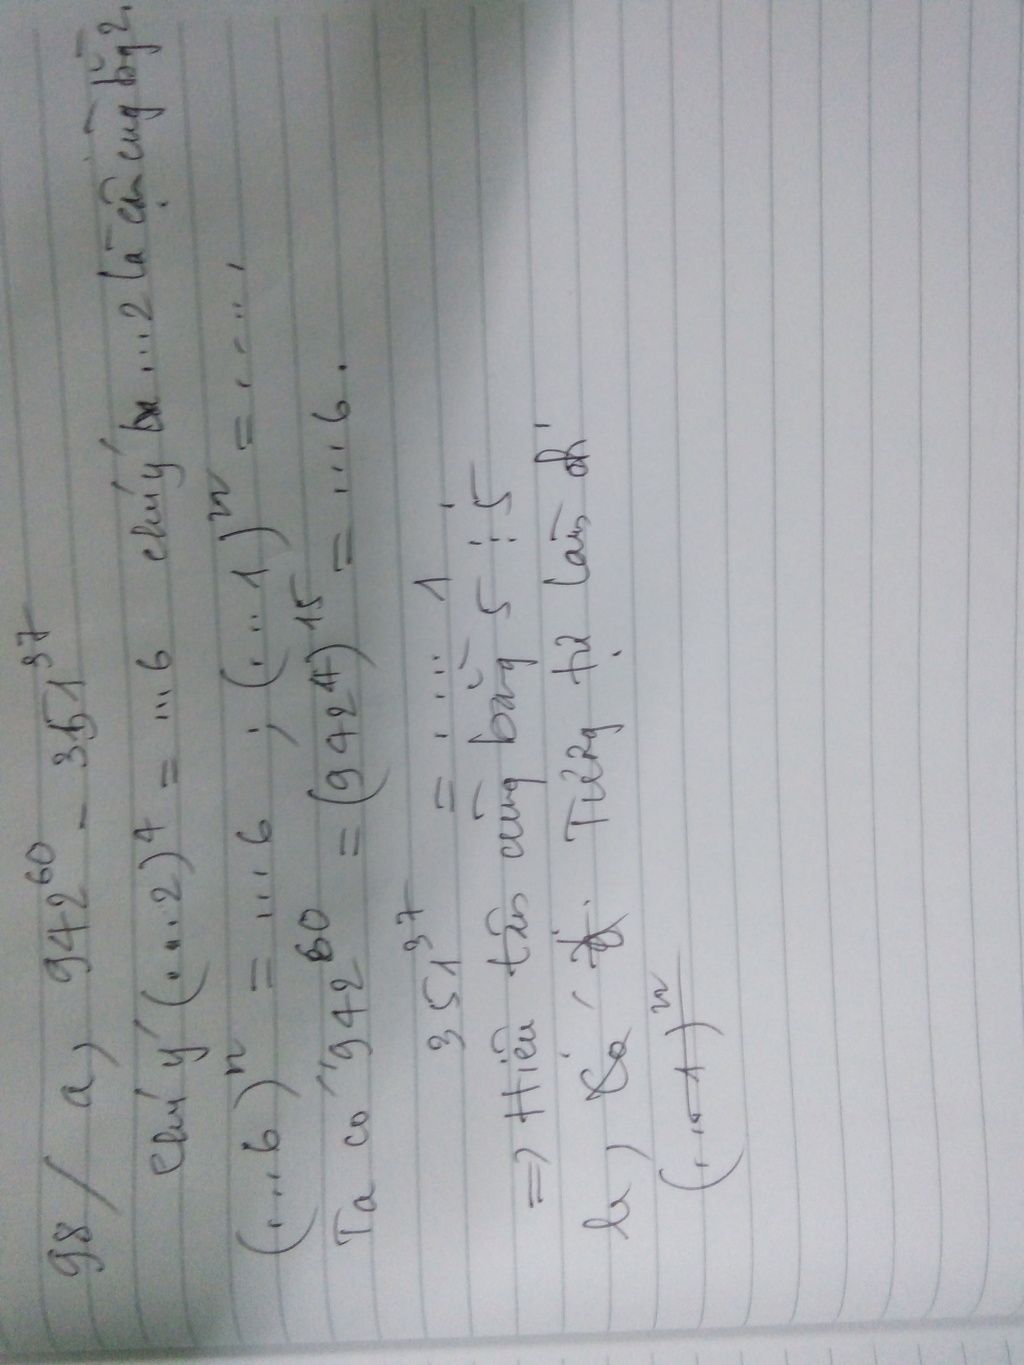 98/ a, 942^60 - 351^37
chú ý (....2)^4 = ...6 chú ý ...2 là tận cùng bằng 2.
(....6)^n = ...6 ; (...1)^n = .....1
Ta có 942^60 = (942^4)^15 = ....6.
351^37 = .....1
=> Hiệu tận cùng bằng 5 ⋮ 5
b, Tương tự làm
(...1)^n